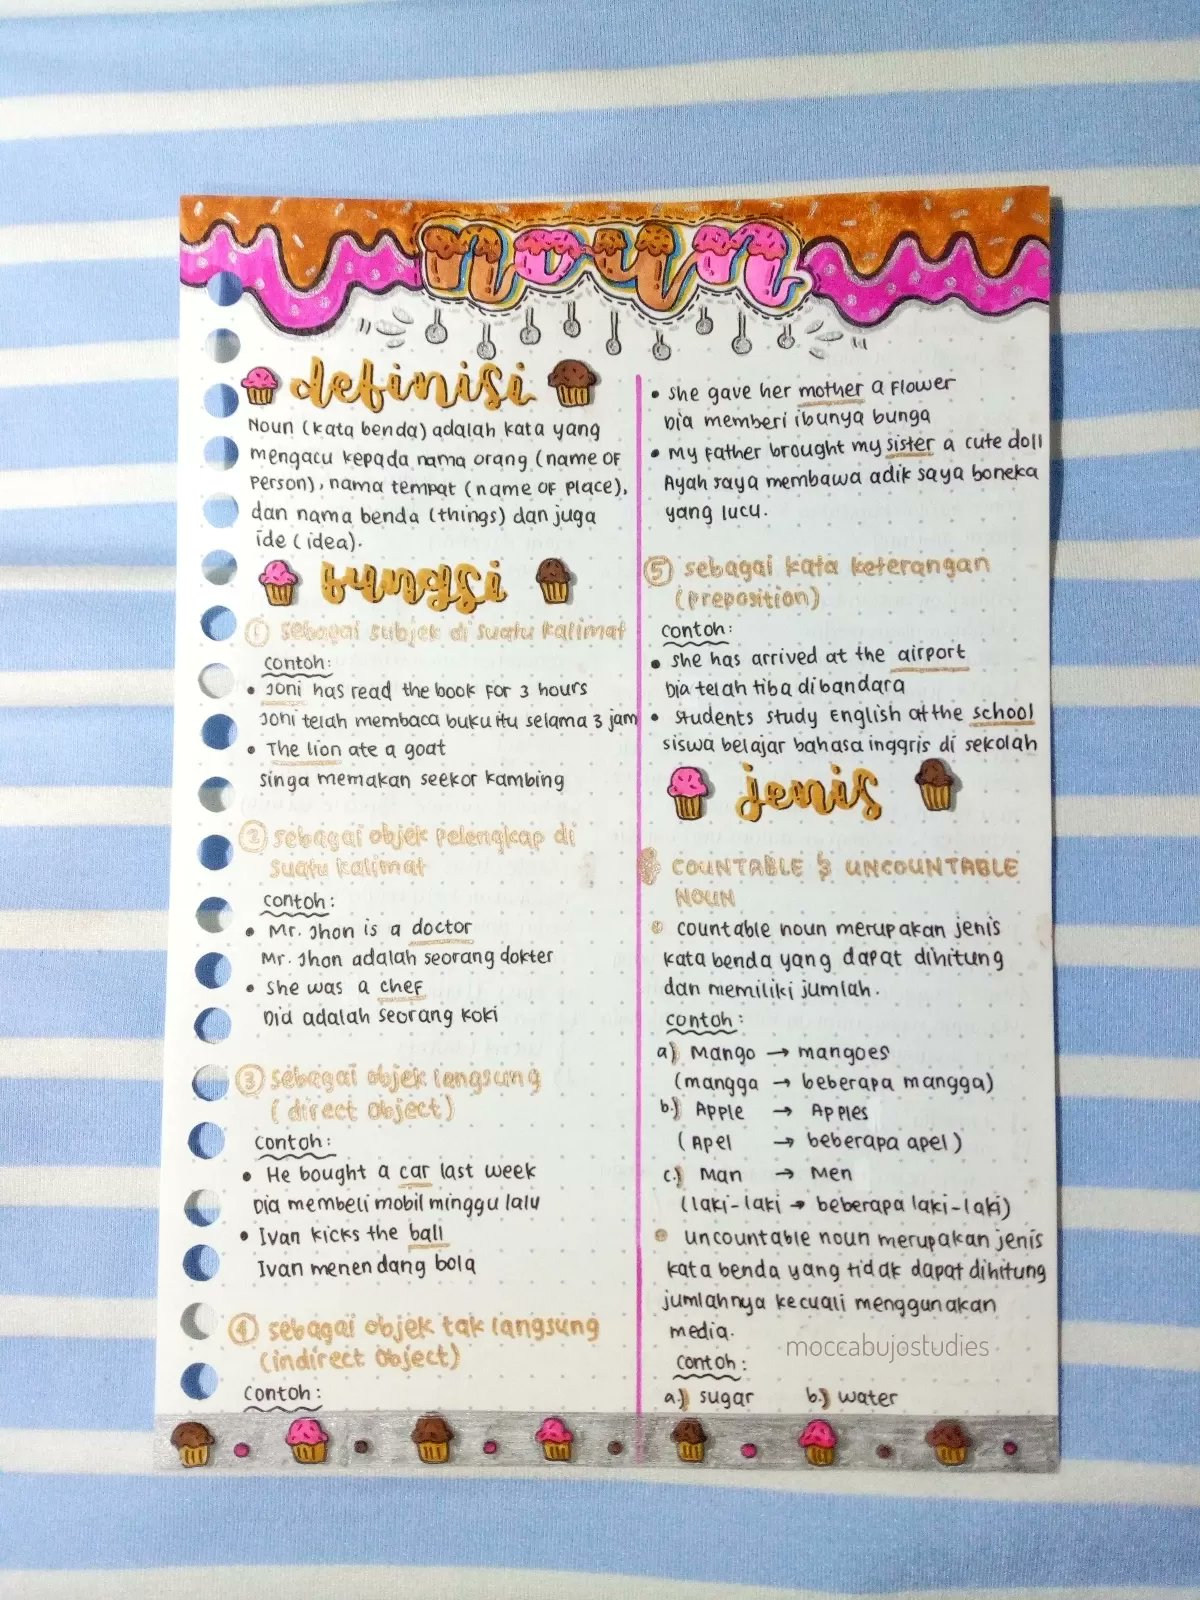 noun
definisi
Noun (kata benda) adalah kata yang
mengacu kepada nama orang (name of
person), nama tempat (name of place),
dan nama benda (things) dan juga
ide (idea).
fungsi
1 sebagai subjek di suatu kalimat
contoh:
• Joni has read the book for 3 hours
Joni telah membaca buku itu selama 3 jam
• The lion ate a goat
singa memakan seekor kambing
2 sebagai objek pelengkap di
suatu kalimat
contoh:
• Mr. Jhon is a doctor
Mr. Jhon adalah seorang dokter
• She was a chef
Dia adalah seorang koki
3 sebagai objek langsung
(direct object)
contoh:
• He bought a car last week
Dia membeli mobil minggu lalu
• Ivan kicks the ball
Ivan menendang bola
4 sebagai objek tak langsung
(indirect object)
contoh:
• she gave her mother a flower
Dia memberi ibunya bunga
• My father brought my sister a cute doll
Ayah saya membawa adik saya boneka
yang lucu.
5 sebagai kata keterangan
(preposition)
contoh:
• she has arrived at the airport
Dia telah tiba dibandara
• students study English at the school
siswa belajar bahasa inggris di sekolah
jenis
COUNTABLE & UNCOUNTABLE
NOUN
countable noun merupakan jenis
kata benda yang dapat dihitung
dan memiliki jumlah.
contoh:
a) Mango → mangoes
(mangga → beberapa mangga)
b.) Apple → Apples
(Apel → beberapa apel)
c.) Man → Men
(laki-laki → beberapa laki-laki)
uncountable noun merupakan jenis
kata benda yang tidak dapat dihitung
jumlahnya kecuali menggunakan
media.
moccabujostudies
contoh:
a.) sugar b.) water